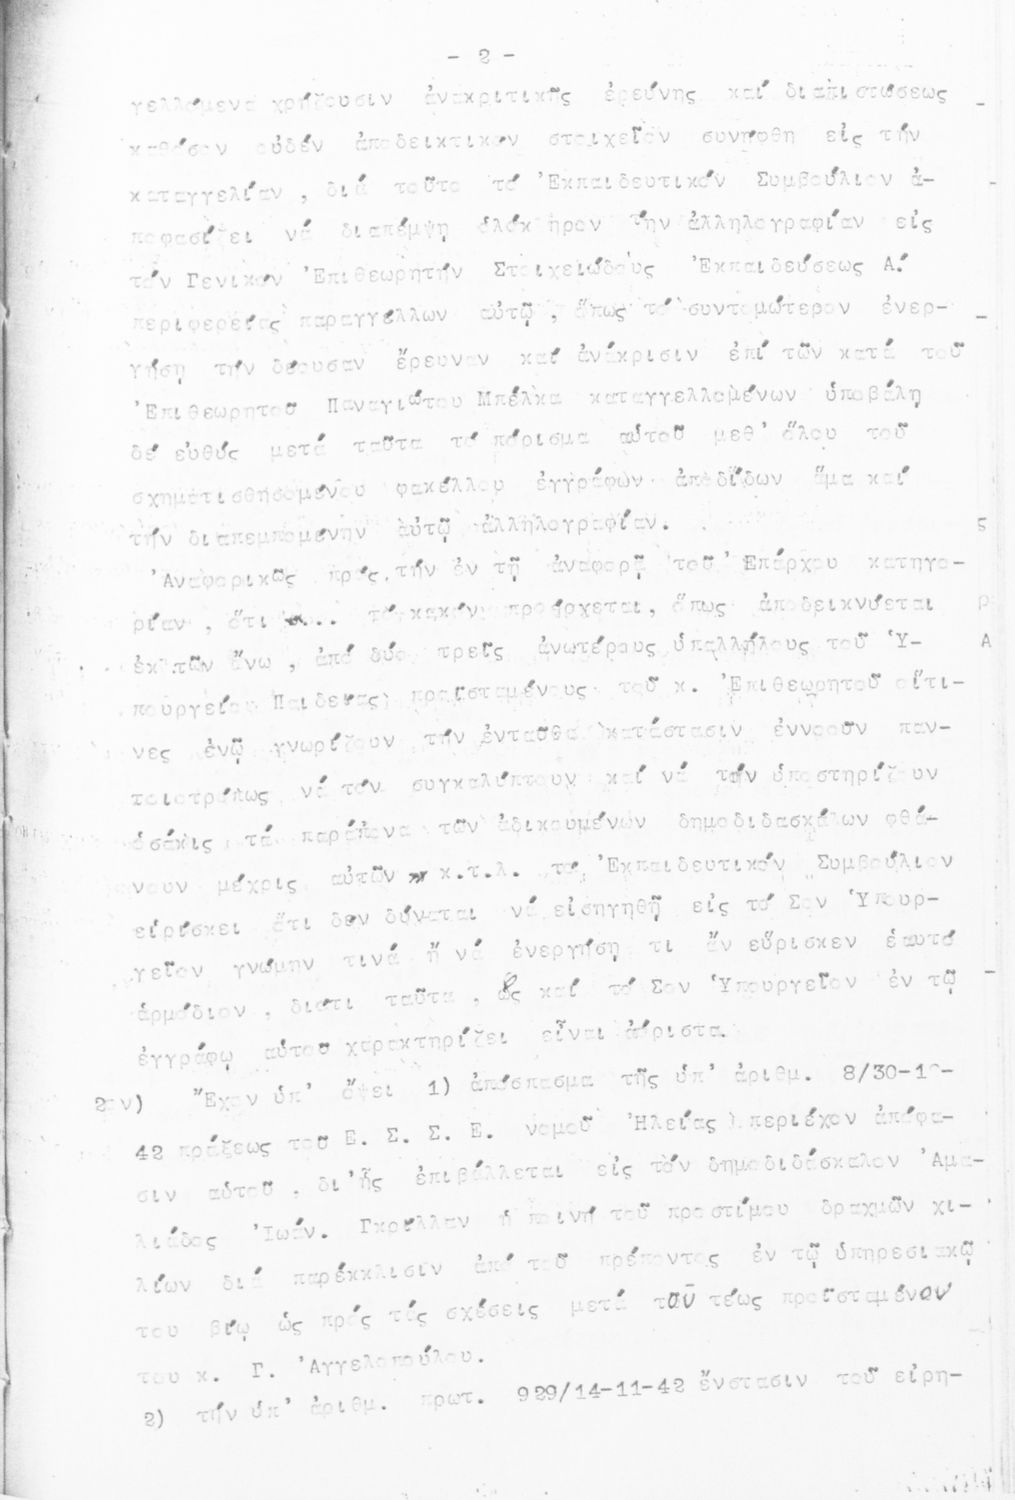 - 2 -
γελλόμενα χρήζουσιν ἀνακριτικῆς ἐρεύνης καί διαπιστώσεως
καθόσον οὐδέν ἀποδεικτικόν στοιχεῖον συνήφθη εἰς τήν
καταγγελίαν , διά τοῦτο τό Ἐκπαιδευτικόν Συμβούλιον ἀ-
ποφασίζει νά διαπέμψη ὁλόκληρον τήν ἀλληλογραφίαν εἰς
τόν Γενικόν Ἐπιθεωρητήν Στοιχειώδους Ἐκπαιδεύσεως Α.
περιφερείας παραγγέλλων αὐτῷ , ὅπως τό συντομώτερον ἐνερ-
γήση τήν δέουσαν ἔρευναν καί ἀνάκρισιν ἐπί τῶν κατά τοῦ
Ἐπιθεωρητοῦ Παναγιώτου Μπέλκα καταγγελλομένων ὑποβάλη
δέ εὐθύς μετά ταῦτα τό πόρισμα αὐτοῦ μεθ' ὅλου τοῦ
σχηματισθησομένου φακέλλου ἐγγράφων ἀποδίδων ἅμα καί
τήν διαπεμπομένην αὐτῷ ἀλληλογραφίαν.
Ἀναφορικῶς πρός τήν ἐν τῇ ἀναφορᾷ τοῦ Ἐπάρχου κατηγο-
ρίαν , ὅτι ".. τό κακόν προέρχεται, ὅπως ἀποδεικνύεται
ἐκ τῶν ἄνω , ἀπό δύο τρεῖς ἀνωτέρους ὑπαλλήλους τοῦ Ὑ-
πουργείου Παιδείας) προϊσταμένους τοῦ κ. Ἐπιθεωρητοῦ οἵτι-
νες ἐνῷ γνωρίζουν τήν ἐνταῦθα κατάστασιν ἐννοοῦν παν-
τοιοτρόπως νά τόν συγκαλύπτουν καί νά τόν ὑποστηρίζουν
ὁσάκις τά παράπονα τῶν ἀδικουμένων δημοδιδασκάλων φθά-
νουν μέχρις αὐτῶν " κ.τ.λ. τό Ἐκπαιδευτικόν Συμβούλιον
εὑρίσκει ὅτι δέν δύναται νά εἰσηγηθῇ εἰς τό Σον Ὑπουρ-
γεῖον γνώμην τινά ἤ νά ἐνεργήση τι ἄν εὕρισκεν ἑαυτό
ἁρμόδιον , διότι ταῦτα , ὡς καί τό Σον Ὑπουργεῖον ἐν τῷ
ἐγγράφῳ αὐτοῦ χαρακτηρίζει εἶναι ἀόριστα.
2ον) Ἔχον ὑπ' ὄψει 1) ἀπόσπασμα τῆς ὑπ' ἀριθμ. 8/30-10-
42 πράξεως τοῦ Ε. Σ. Σ. Ε. νομοῦ Ἠλείας ) περιέχον ἀπόφα-
σιν αὐτοῦ , δι'ἧς ἐπιβάλλεται εἰς τόν δημοδιδάσκαλον Ἀμα-
λιάδος Ἰωάν. Γκρίλλαν ἡ ποινή τοῦ προστίμου δραχμῶν χι-
λίων διά παρέκκλισιν ἀπό τοῦ πρέποντος ἐν τῷ ὑπηρεσιακῷ
του βίῳ ὡς πρός τάς σχέσεις μετά τοῦ τέως προϊσταμένου
του κ. Γ. Ἀγγελοπούλου.
2) τήν ὑπ' ἀριθμ. πρωτ. 929/14-11-42 ἔνστασιν τοῦ εἰρη-